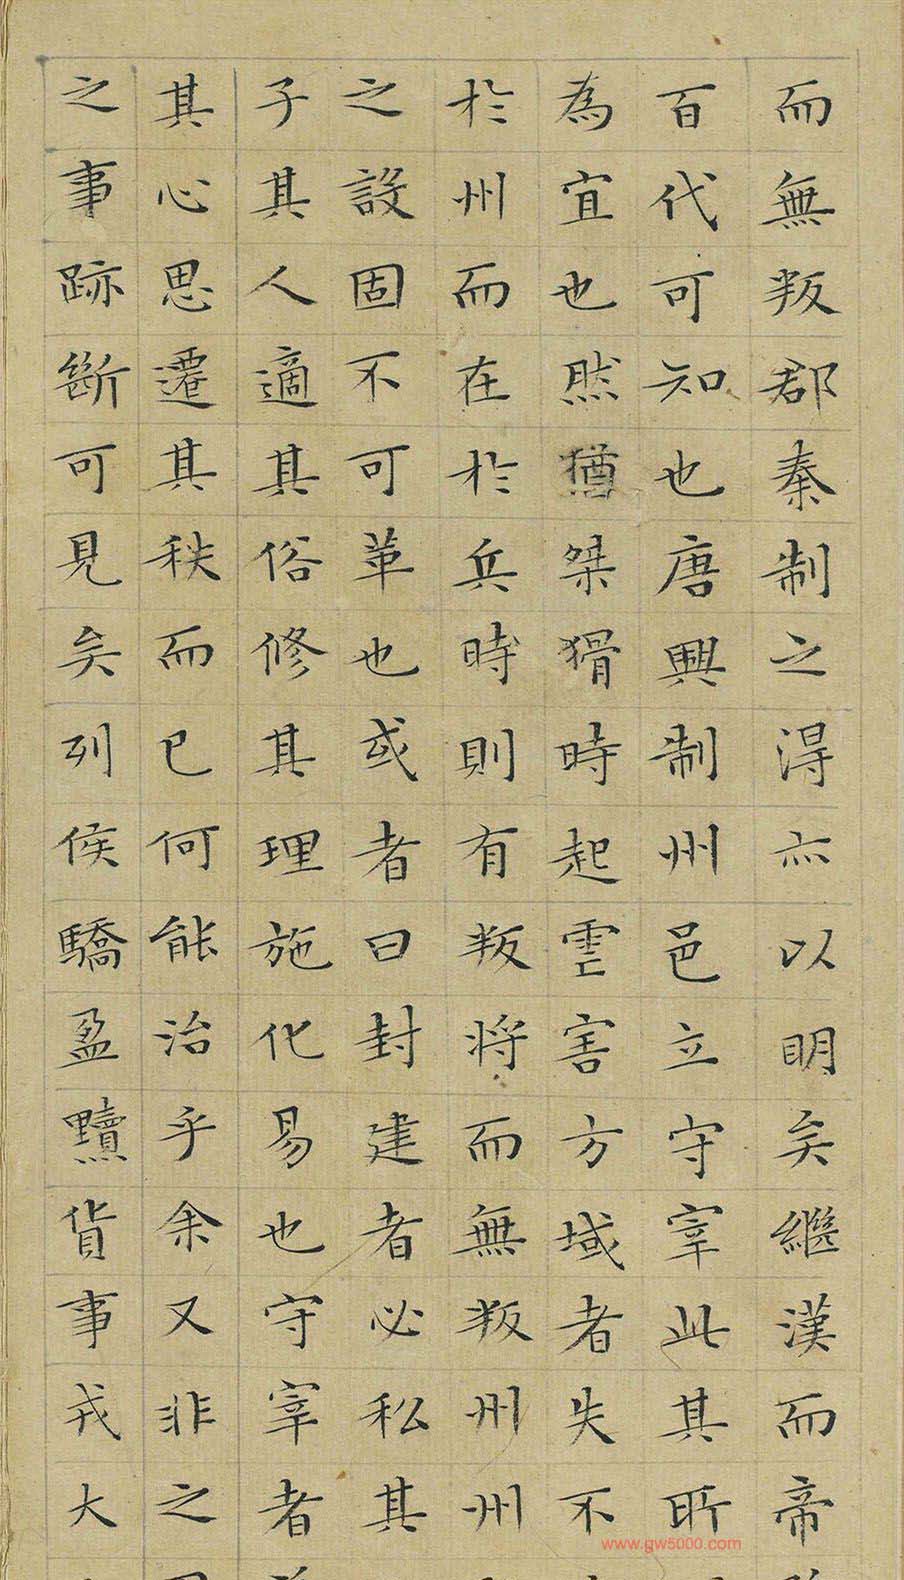 而無叛郡秦制之淂亦以明矣繼漢而帝
百代可知也唐興制州邑立守宰此其所
為宜也然猶桀猾時起雲害方域者失不
於州而在於兵時則有叛將而無叛州州
之設固不可革也或者曰封建者必私其
子其人適其俗修其理施化易也守宰者
其心思遷其秩而已何能治乎余又非之
之事跡斷可見矣列侯驕盈黷貨事戎大
www.gw5000.com